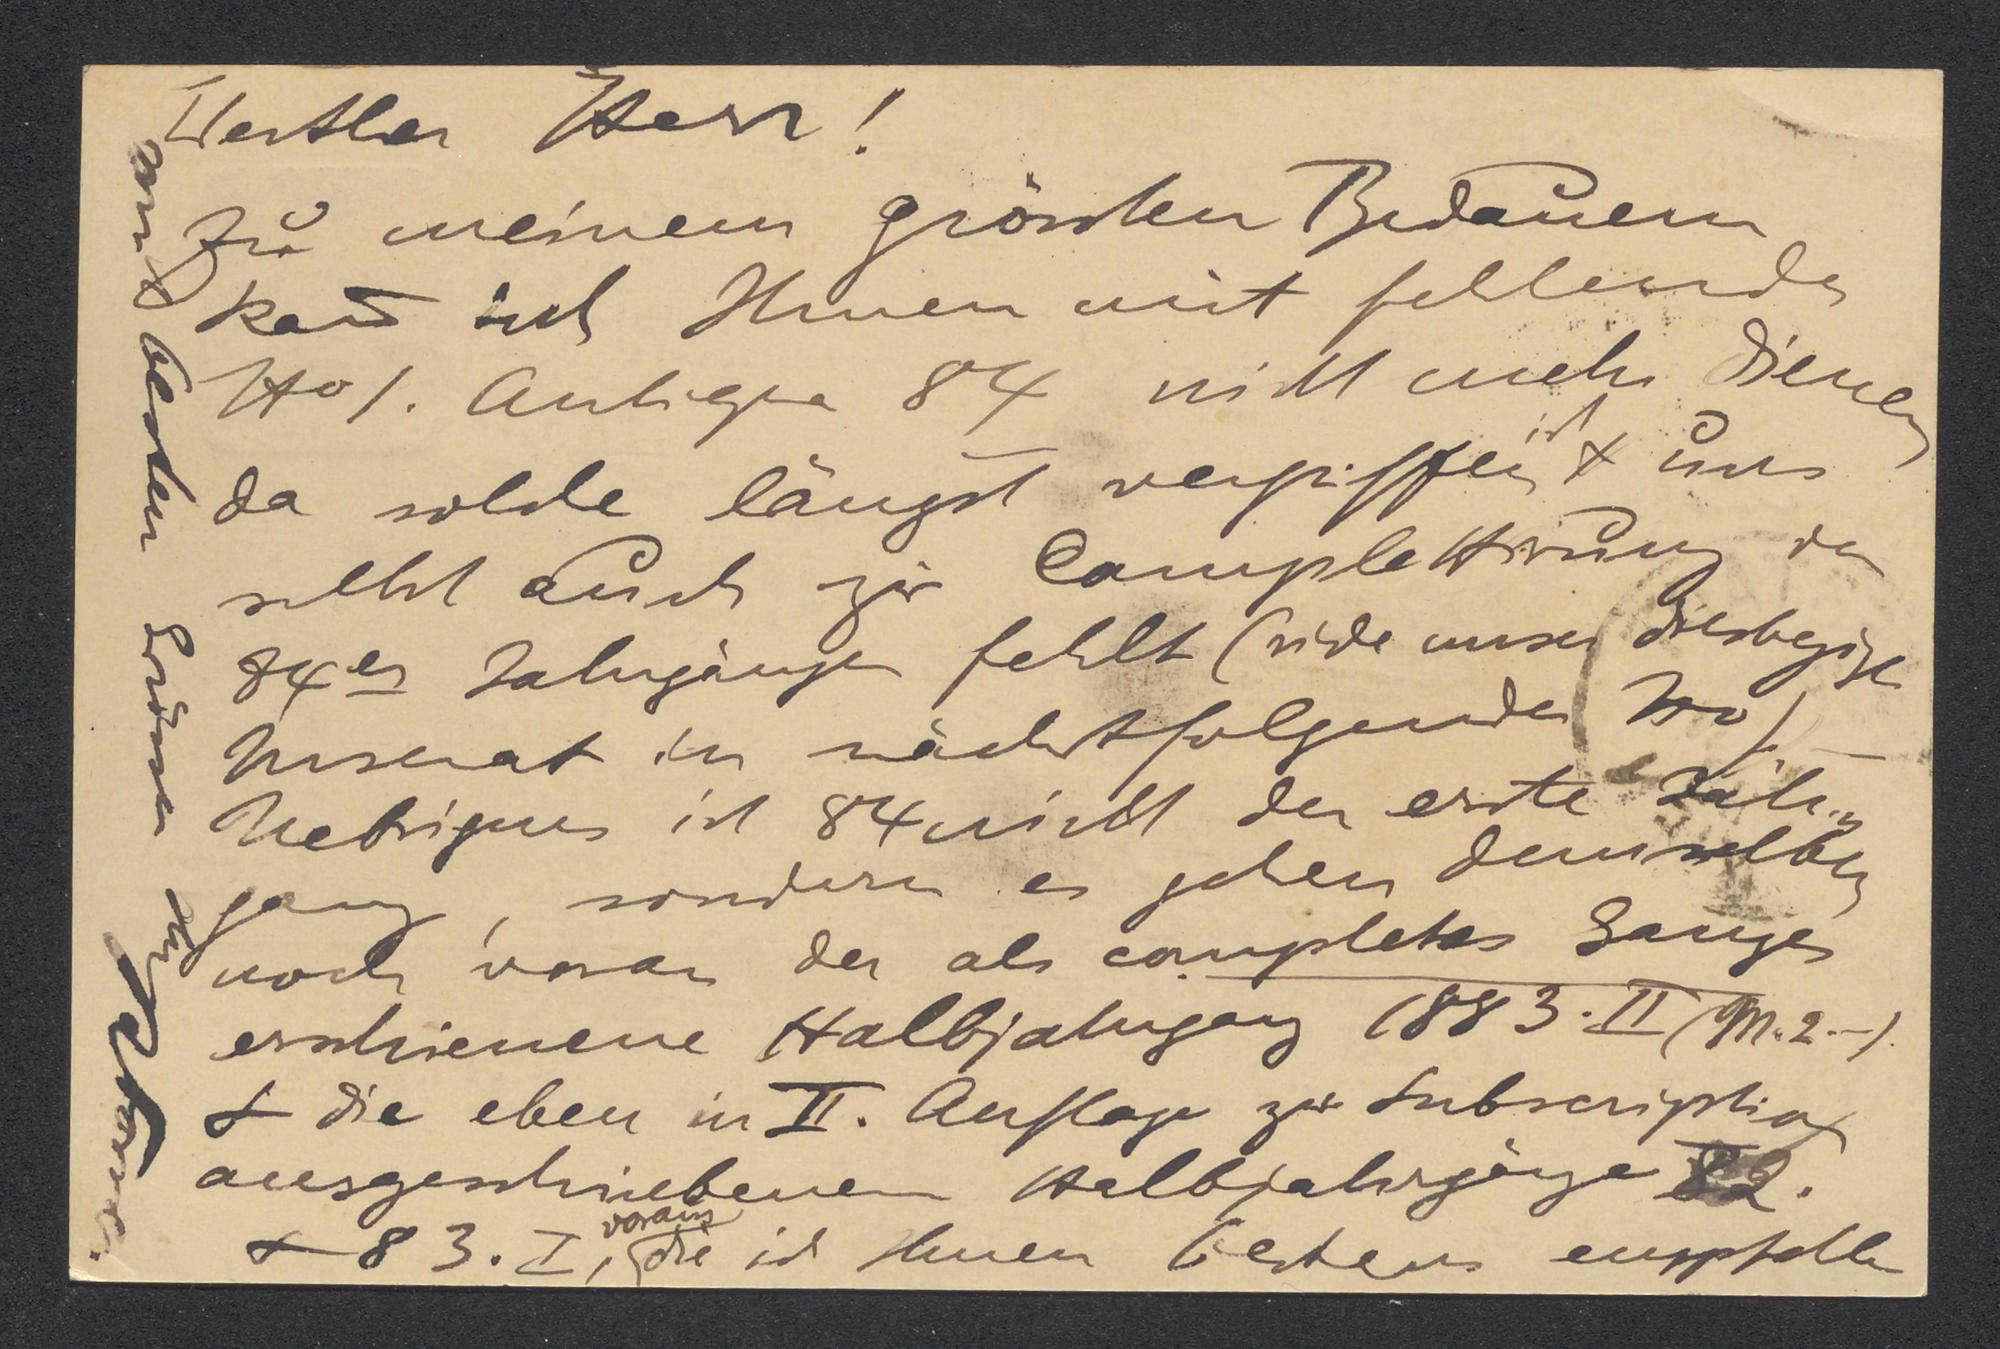 Werther Herr!
Zu meinem grössten Bedauern
kan̄ ich Ihnen mit fehlender
No/. Antiqua 84 nicht mehr dienen
da solche längst vergriffen ist & uns
selbst auch zur Complettirung der
84er Jahrgänge fehlt (vide unser diesbezügl
Inserat in nächstfolgender No/.
Uebrigens ist 84 nicht der erste Jahr„
gang, sondern es gehen demselben
noch voran der als completes Ganzes
erschienene Halbjahrgang 1883. II (M. 2.—).
& die eben in II. Auflage zur Subscription
ausgeschriebenen Halbjahrgänge 82.
& 83. I, voraus die ich Ihnen bestens empfehle
mit besten Grüssen Ihr